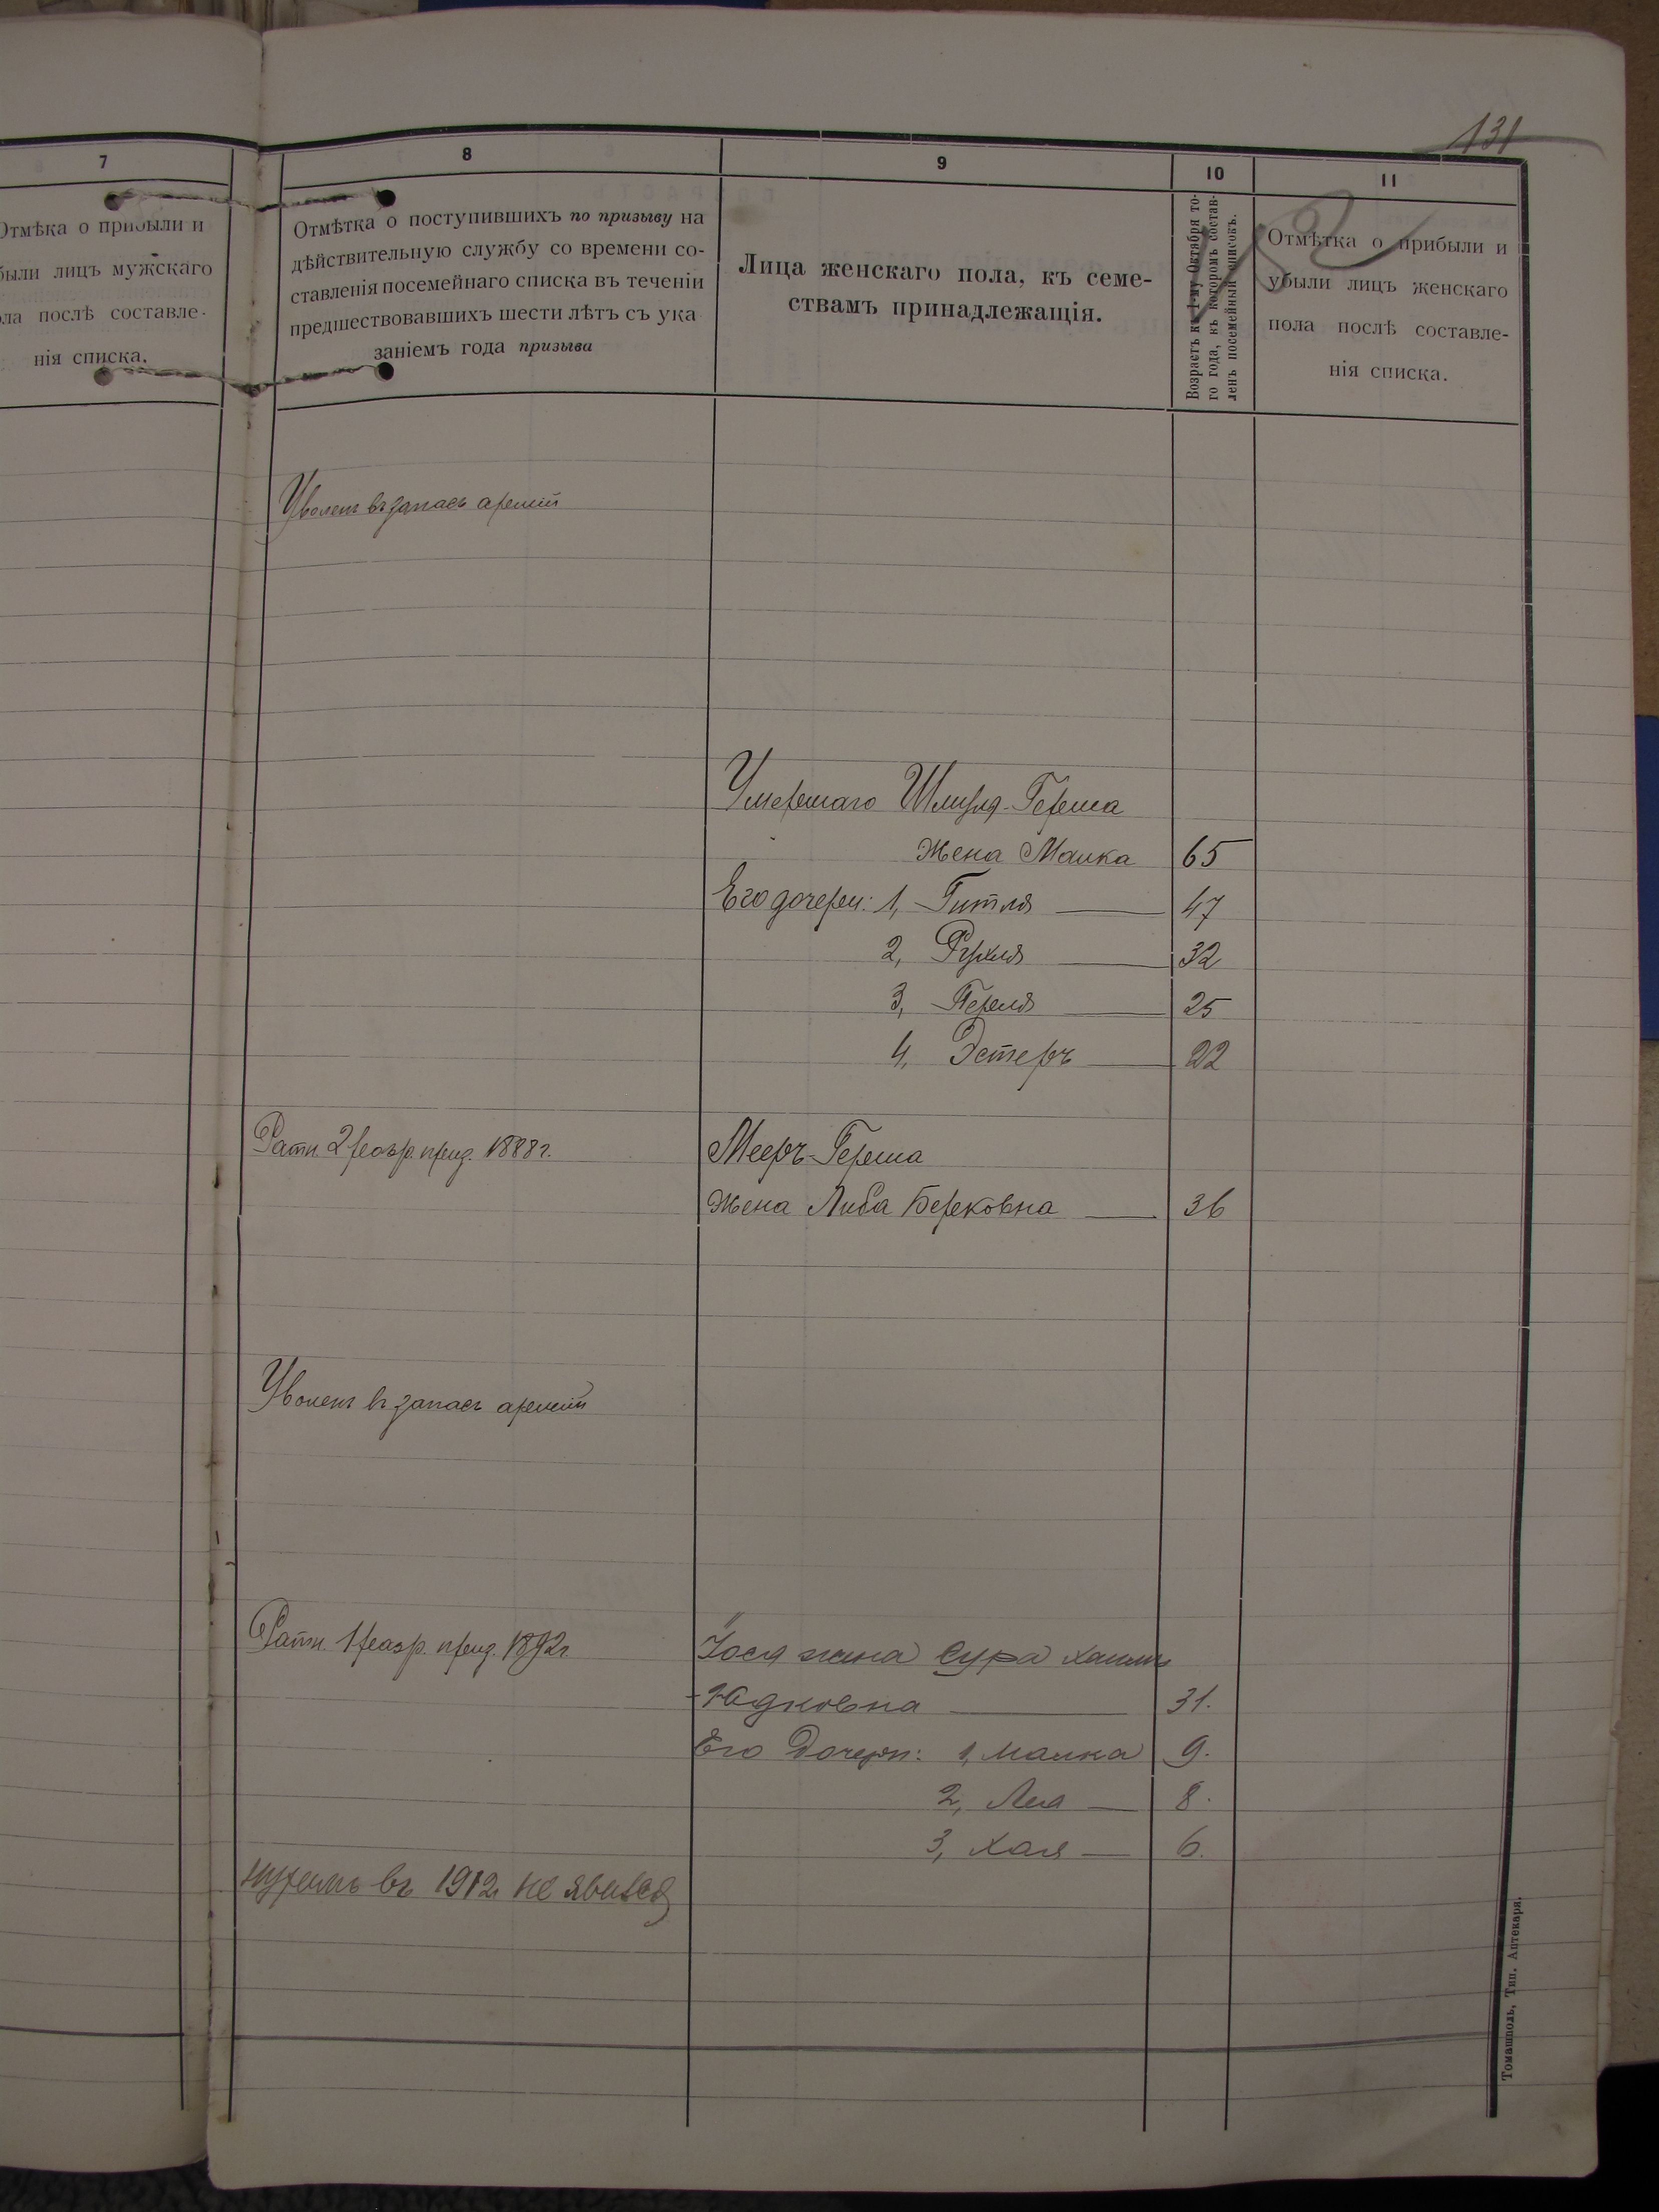 131
7
8
9
10
11
Отмѣка о прибыли и
были лицъ мужскаго
ола послѣ составле-
нія списка.
Отмѣтка о поступившихъ по призыву на
дѣйствительную службу со времени со-
ставленія посемейнаго списка въ теченіи
предшествовавшихъ шести лѣтъ съ ука
заніемъ года призыва
Лица женскаго пола, къ семе-
ствамъ принадлежащія.
Возрастъ къ 1-му Октября то-
го года, къ которомъ состав-
ленъ посемейный списокъ.
Отмѣтка о прибыли и
убыли лицъ женскаго
пола послѣ составле-
нія списка.
Уволенъ въ запасъ армій
Умершаго Шмуля-Герша
Жена Малка 65
Его дочери: 1, Гитля 47
2, Рухля 32
3, Перля 25
4, Эстеръ 22
Ратн. 2 разр. приз. 1888 г. Мееръ-Герша
Жена Либа Берковна 36
Уволенъ въ запасъ армій
Ратн. 1 разр. приз. 1892 г. Іося жена Сура
Юдковна 31.
Его Дочери: 1, Малка 9.
2, Леа 8.
3, Хая 6.
въ 1912 г не явился
Томашполь, Тип. Аптекаря.